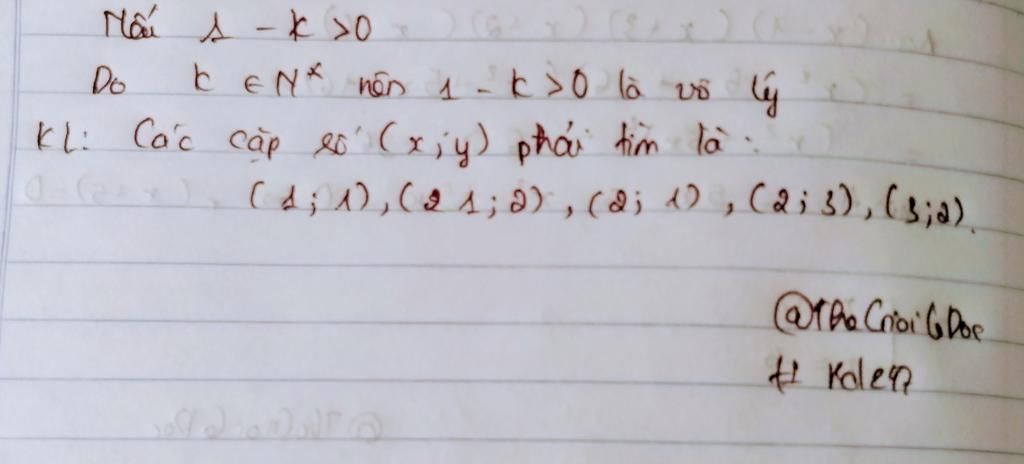 Nếu 1 - k > 0
Do k ∈ N* nên 1 - k > 0 là vô lý
KL: Các cặp số (x; y) phải tìm là:
(1; 1), (2 1; 2), (2; 1), (2; 3), (3; 2).